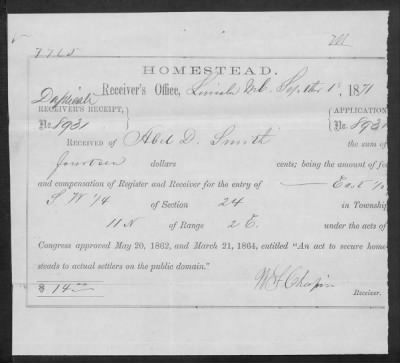 7765
HOMESTEAD.
Receiver's Office, Lincoln Sept 1st, 1871
Duplicate
RECEIVER'S RECEIPT, APPLICATION
No. 8931 No. 8931
RECEIVED OF Abel D. Smith the sum of
fourteen dollars cents; being the amount of fe
and compensation of Register and Receiver for the entry of East ½
S W ¼ of Section 24 in Township
11 N of Range 2 E. under the acts of
Congress approved May 20, 1862, and March 21, 1864, entitled "An act to secure home-
steads to actual settlers on the public domain."
$ 14.00 Chapin
Receiver.